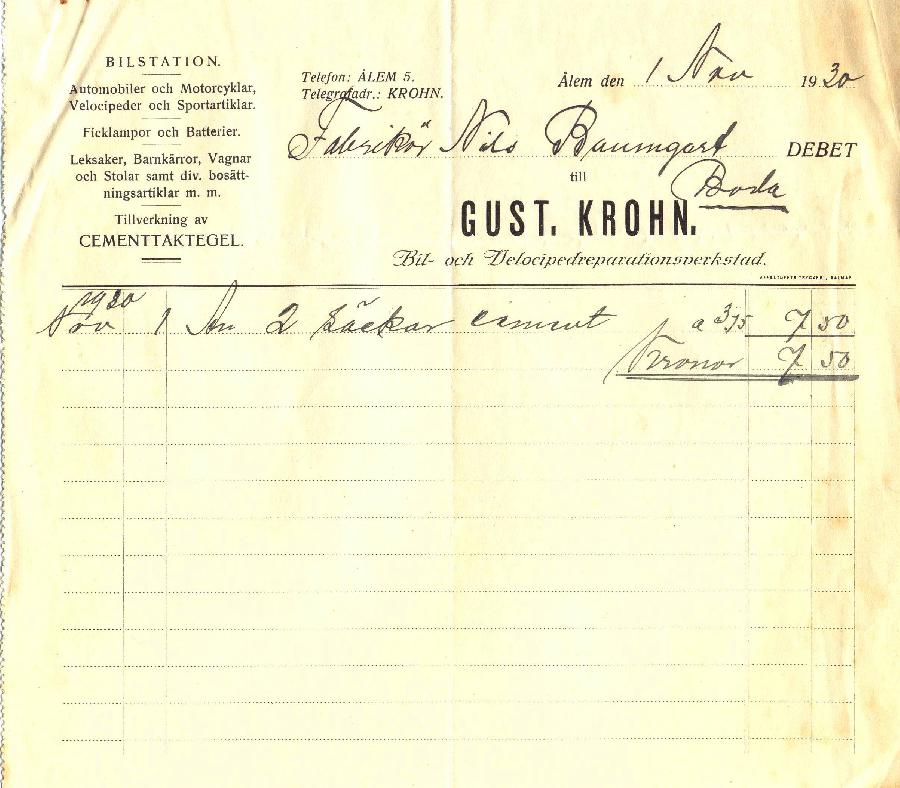 BILSTATION.
Automobiler och Motorcyklar,
Velocipeder och Sportartiklar.
Ficklampor och Batterier.
Leksaker, Barnkärror, Vagnar
och Stolar samt div. bosätt-
ningsartiklar m. m.
Tillverkning av
CEMENTTAKTEGEL.
Telefon: ÅLEM 5.
Telegrafadr.: KROHN.
Ålem den 1 Nov 1930
Fabrikör Nils Baumgart DEBET
till
Boda
GUST. KROHN.
Bil- och Velocipedreparationsverkstad.
1930
Nov 1 An 2 säckar cement a 3,75 7 50
Kronor 7 50